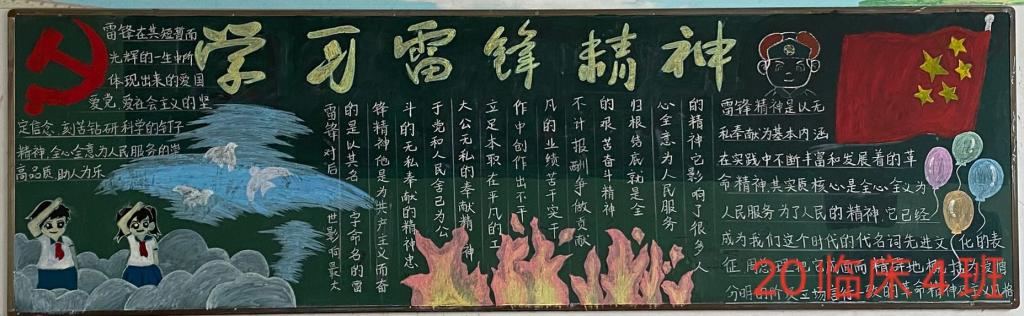 学习雷锋精神
雷锋在其短暂而
光辉的一生中所
体现出来的爱国
爱党、爱社会主义的坚
定信念、刻苦钻研科学的钉子
精神、全心全意为人民服务的崇
高品质、助人为乐
的精神它影响了很多人
心全意为人民服务
归根结底就是全
的艰苦奋斗精神
不计报酬争做贡献
凡的业绩苦干实干
作中创作出不平
立足本职在平凡的工
大公无私的奉献精神
于党和人民舍己为公
斗的无私奉献的精神忠
锋精神他是为共产主义而奋
的是以其名字命名的雷
雷锋对后世影响最大
雷锋精神是以无
私奉献为基本内涵
在实践中不断丰富和发展着的革
命精神其实质核心是全心全意为
人民服务为了人民的精神它已经
成为我们这个时代的代名词先进文化的表
征
分明的
的革命精神
20临床4班